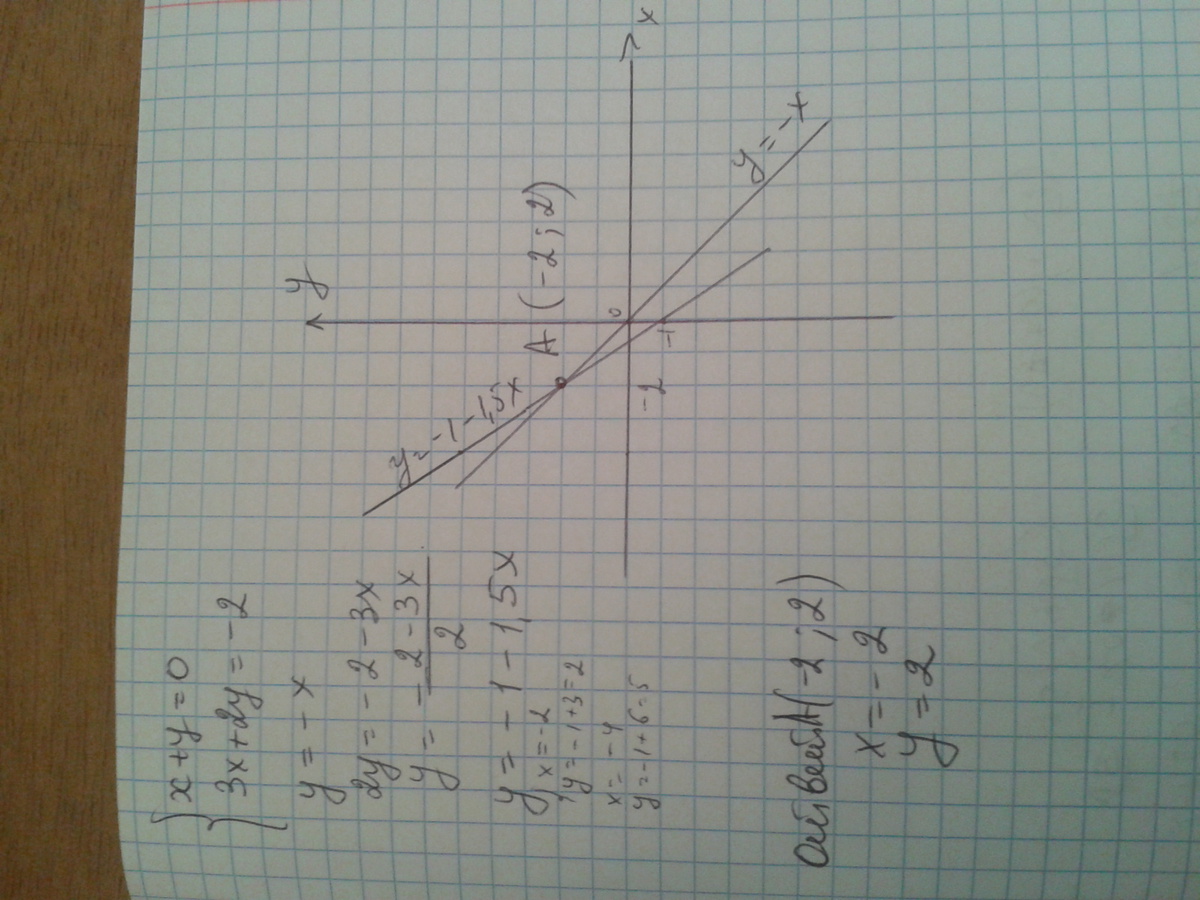 { x+y=0
3x+2y=-2
y=-x
2y=-2-3x
y= -2-3x
2
y=-1-1,5x
1) x=-2
y=-1+3=2
x=-4
y=-1+6=5
y
x
0
-1
-2
A (-2;2)
y=-1-1,5x
y=-x
Ответ: A(-2;2)
x=-2
y=2